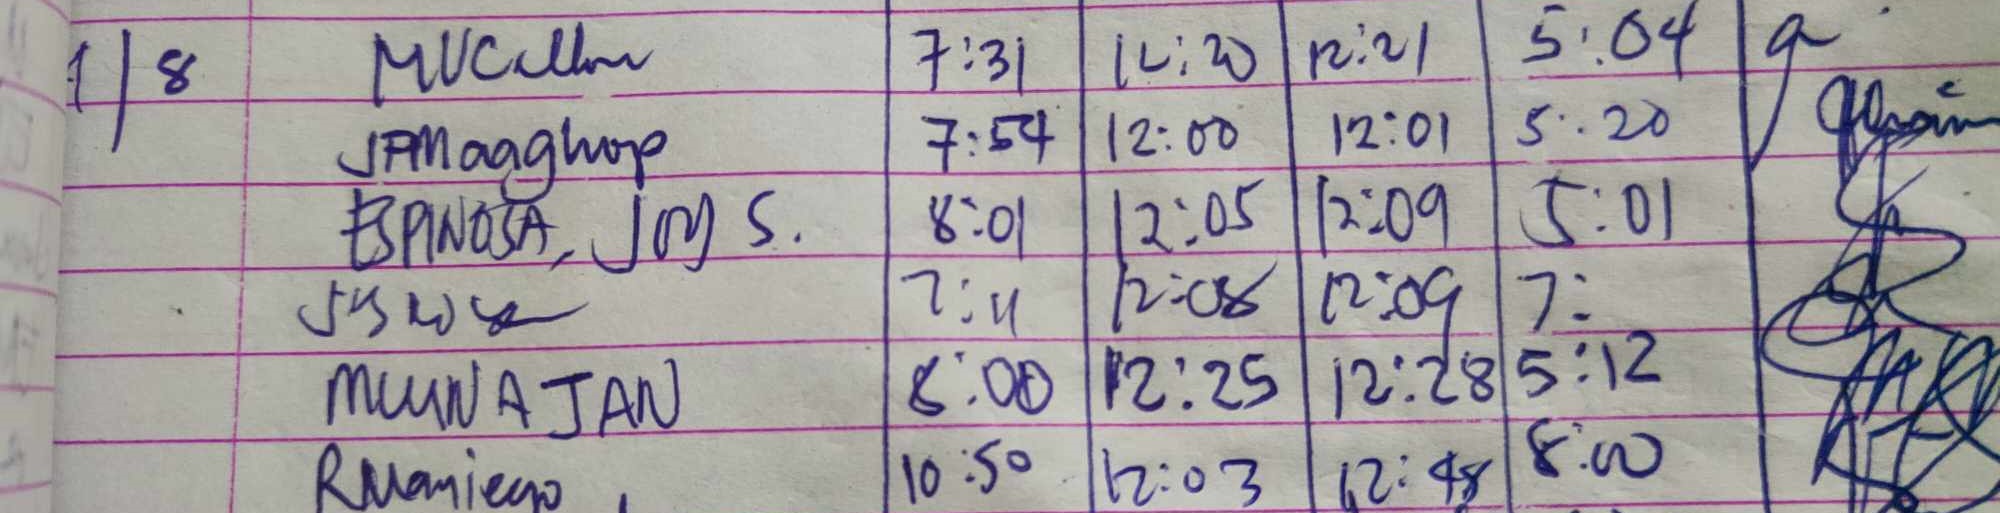 1/8 7:31 12:20 12:21 5:04
JAMagghop 7:54 12:00 12:01 5:20
ESPINOSA, JOY S. 8:01 12:05 12:09 5:01
7:11 12:08 12:09 7:
8:00 12:25 12:28 5:12
RManiego 10:50 12:03 12:48 8:00